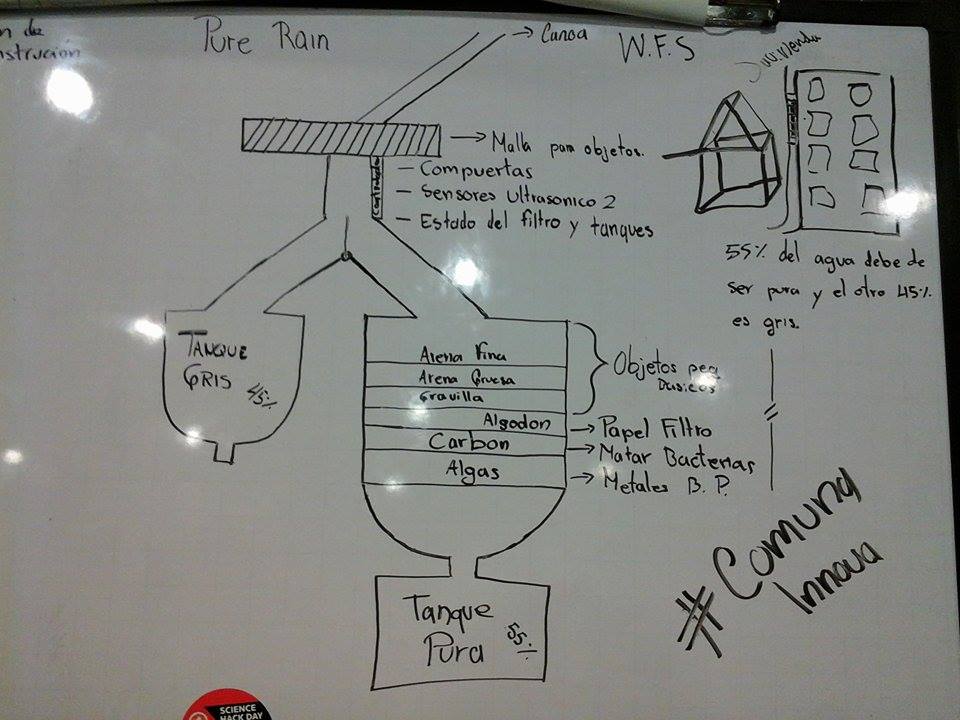 n de
nstrución
Pure Rain
→ Canoa
W.F.S
→ Malla para objetos.
- Compuertas
- Sensores Ultrasonico 2
- Estado del filtro y tanques
55% del agua debe de
ser pura y el otro 45%
es gris.
TANQUE
GRIS 45%
Arena Fina
Arena Gruesa
Gravilla
Algodon
Carbon
Algas
Objetos peq
→ Papel Filtro
→ Matar Bacterias
→ Metales B.P.
Tanque
Pura 55%
#Comuna
Innova
SCIENCE
HACK DAY